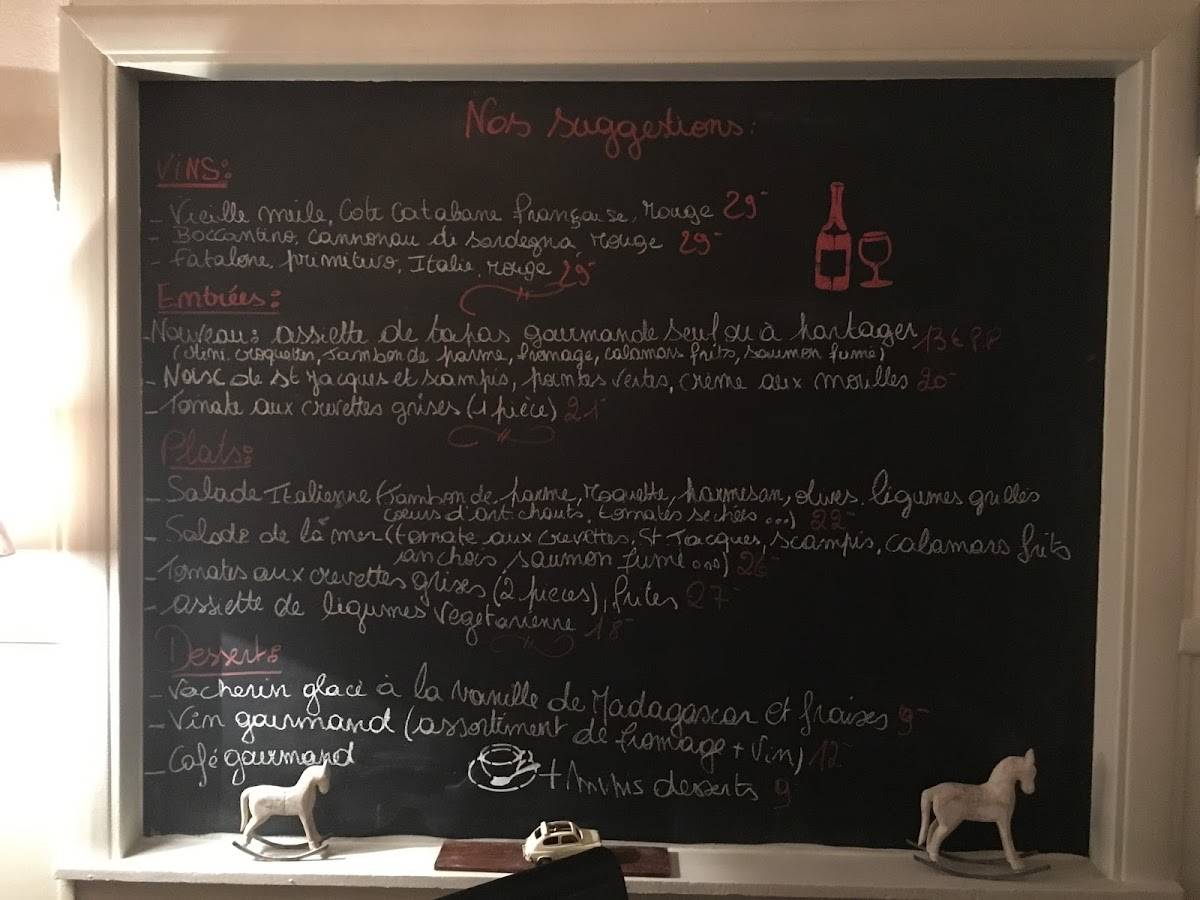 Nos suggestions:
VINS:
- Vieille mule, Cote Catalane française, rouge 29-
- Boccantino, Cannonau di Sardegna, rouge 29-
- Fatalone, primitivo, Italie, rouge 29-
Entrées:
- Nouveau: assiette de tapas gourmande seul ou à partager 13€ P.P
(Mini croquettes, Jambon de parme, fromage, calamars frits, saumon fumé)
- Noix de St Jacques et scampis, pointes vertes, crème aux moules 20-
- Tomate aux crevettes grises (1 pièce) 21-
Plats:
- Salade Italienne (Jambon de parme, Roquette, parmesan, olives, légumes grillés
coeurs d'artichauts, tomates sechées ...) 22-
- Salade de la mer (tomate aux crevettes, St Jacques, scampis, calamars frits
anchois saumon fumé ...) 26-
- Tomates aux crevettes grises (2 pièces), frites 27-
- assiette de légumes Vegetarienne 18-
Desserts:
- Vacherin glacé à la vanille de Madagascar et fraises 9-
- Vin gourmand (assortiment de fromage + Vin) 12-
- Café gourmand + minis desserts 9